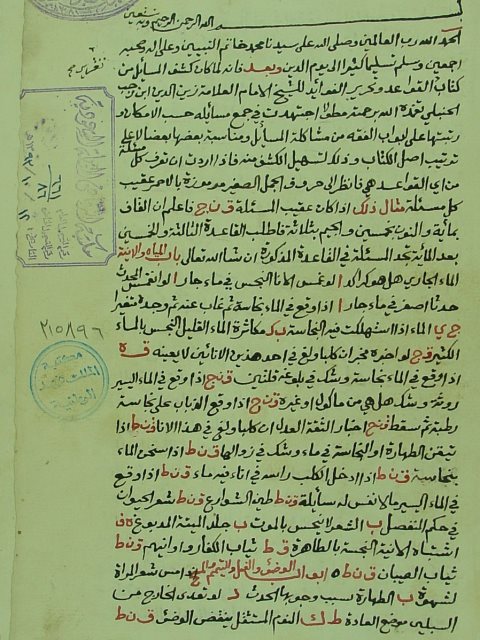 بسم الله الرحمن الرحيم وبه نستعين
الحمد لله رب العالمين وصلى الله على سيدنا محمد خاتم النبيين وعلى اله وصحبه
اجمعين وسلم تسليما كثيرا الى يوم الدين وبعد فانه لما كان كشف المسائل من
كتاب القواعد وتحرير الفوائد للشيخ الامام العلامة زين الدين ابن رجب
الحنبلي تغمده الله برحمته اجتهدت في جمع مسائله حسب الامكان و
رتبتها على ابواب الفقه من مشاكلة المسائل ومناسبة بعضها بعضا لا على
ترتيب اصل الكتاب وذلك لتسهيل الكشف منه فاذا اردت ان تعرف كل مسئلة
من اي القواعد هي فانظر الى حروف الجمل الصغير مرموزة بالاحمر عقيب
كل مسئلة مثال ذلك اذا كان عقيب المسئلة ق ن ج فاعلم ان القاف
بمائة والنون بخمسين والجيم بثلاثة فاطلب القاعدة الثالثة والخمسين
بعد المائة تجد المسئلة في القاعدة المذكورة ان شاء الله تعالى باب المياه والانية
الماء الجاري هل هو كالراكد ا لو غمس الاناء النجس في ماء جار ا لو انغمس المحدث
حدثا اصغر في ماء جار ا اذا وقع في الماء نجاسة ثم غاب عنه ثم وجده متغيرا
الماء اذا استهلكت فيه النجاسة ك ب مكاثرة الماء القليل النجس بالماء
الكثير لو اخبره مخبر ان كلبا ولغ في احد هذين الانائين لا بعينه
اذا وقع في الماء نجاسة وشك في بلوغه قلتين ق ن ح اذا وقع في الماء اليسير
روثة وشك هل هي من ماكول او غيره ق ن ح اذا وقع الذباب على نجاسة
رطبة ثم سقط اخبار الثقة العدل ان كلبا ولغ في هذا الاناء اذا
تيقن الطهارة او النجاسة في ماء وشك في زوالها ق ن ط اذا سخن الماء
بنجاسة ق ن ط اذا ادخل الكلب راسه في اناء فيه ماء ق ن ط اذا وقع
في الماء اليسير ما لا نفس له سائلة ق ن ط طين الشوارع ق ن ط شعر الحيوان
في حكم المنفصل ب الشعر لا ينجس بالموت ب جلد الميتة المدبوغ
اشتباه الانية النجسة بالطاهرة ق ط ثياب الكفار واوانيهم ق ن ط
ثياب الصبيان ق ن ط ابواب الوضوء والغسل والتيمم اذا مس شعر المراة
لشهوة ب الطهارة سبب وجوبها الحدث لو تعدى الخارج من
السبيلين موضع العادة النوم المستثقل ينقض الوضوء ق ن ط
٢١٥٨٩٦